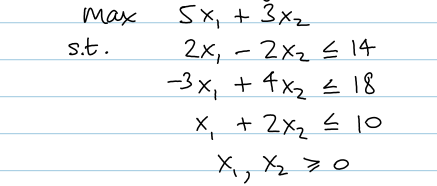 max 5x₁ + 3x₂
s.t. 2x₁ - 2x₂ ≤ 14
-3x₁ + 4x₂ ≤ 18
x₁ + 2x₂ ≤ 10
x₁, x₂ ≥ 0